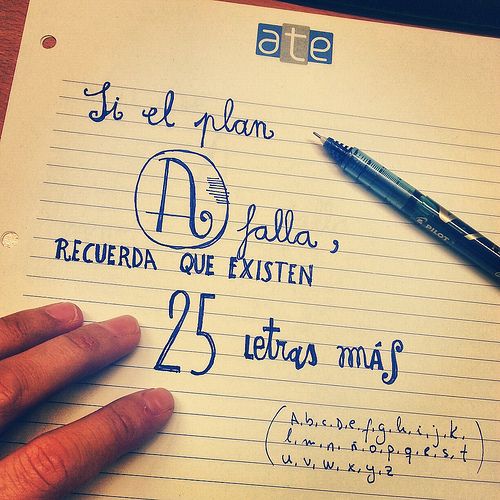 ate
Si el plan
A falla,
RECUERDA QUE EXISTEN
25 Letras MÁS
(A, b, c, D, e, f, g, h, i, j, k,
l, m, n, ñ, o, p, q, e, s, t
u, v, w, x, y, z)
PILOT